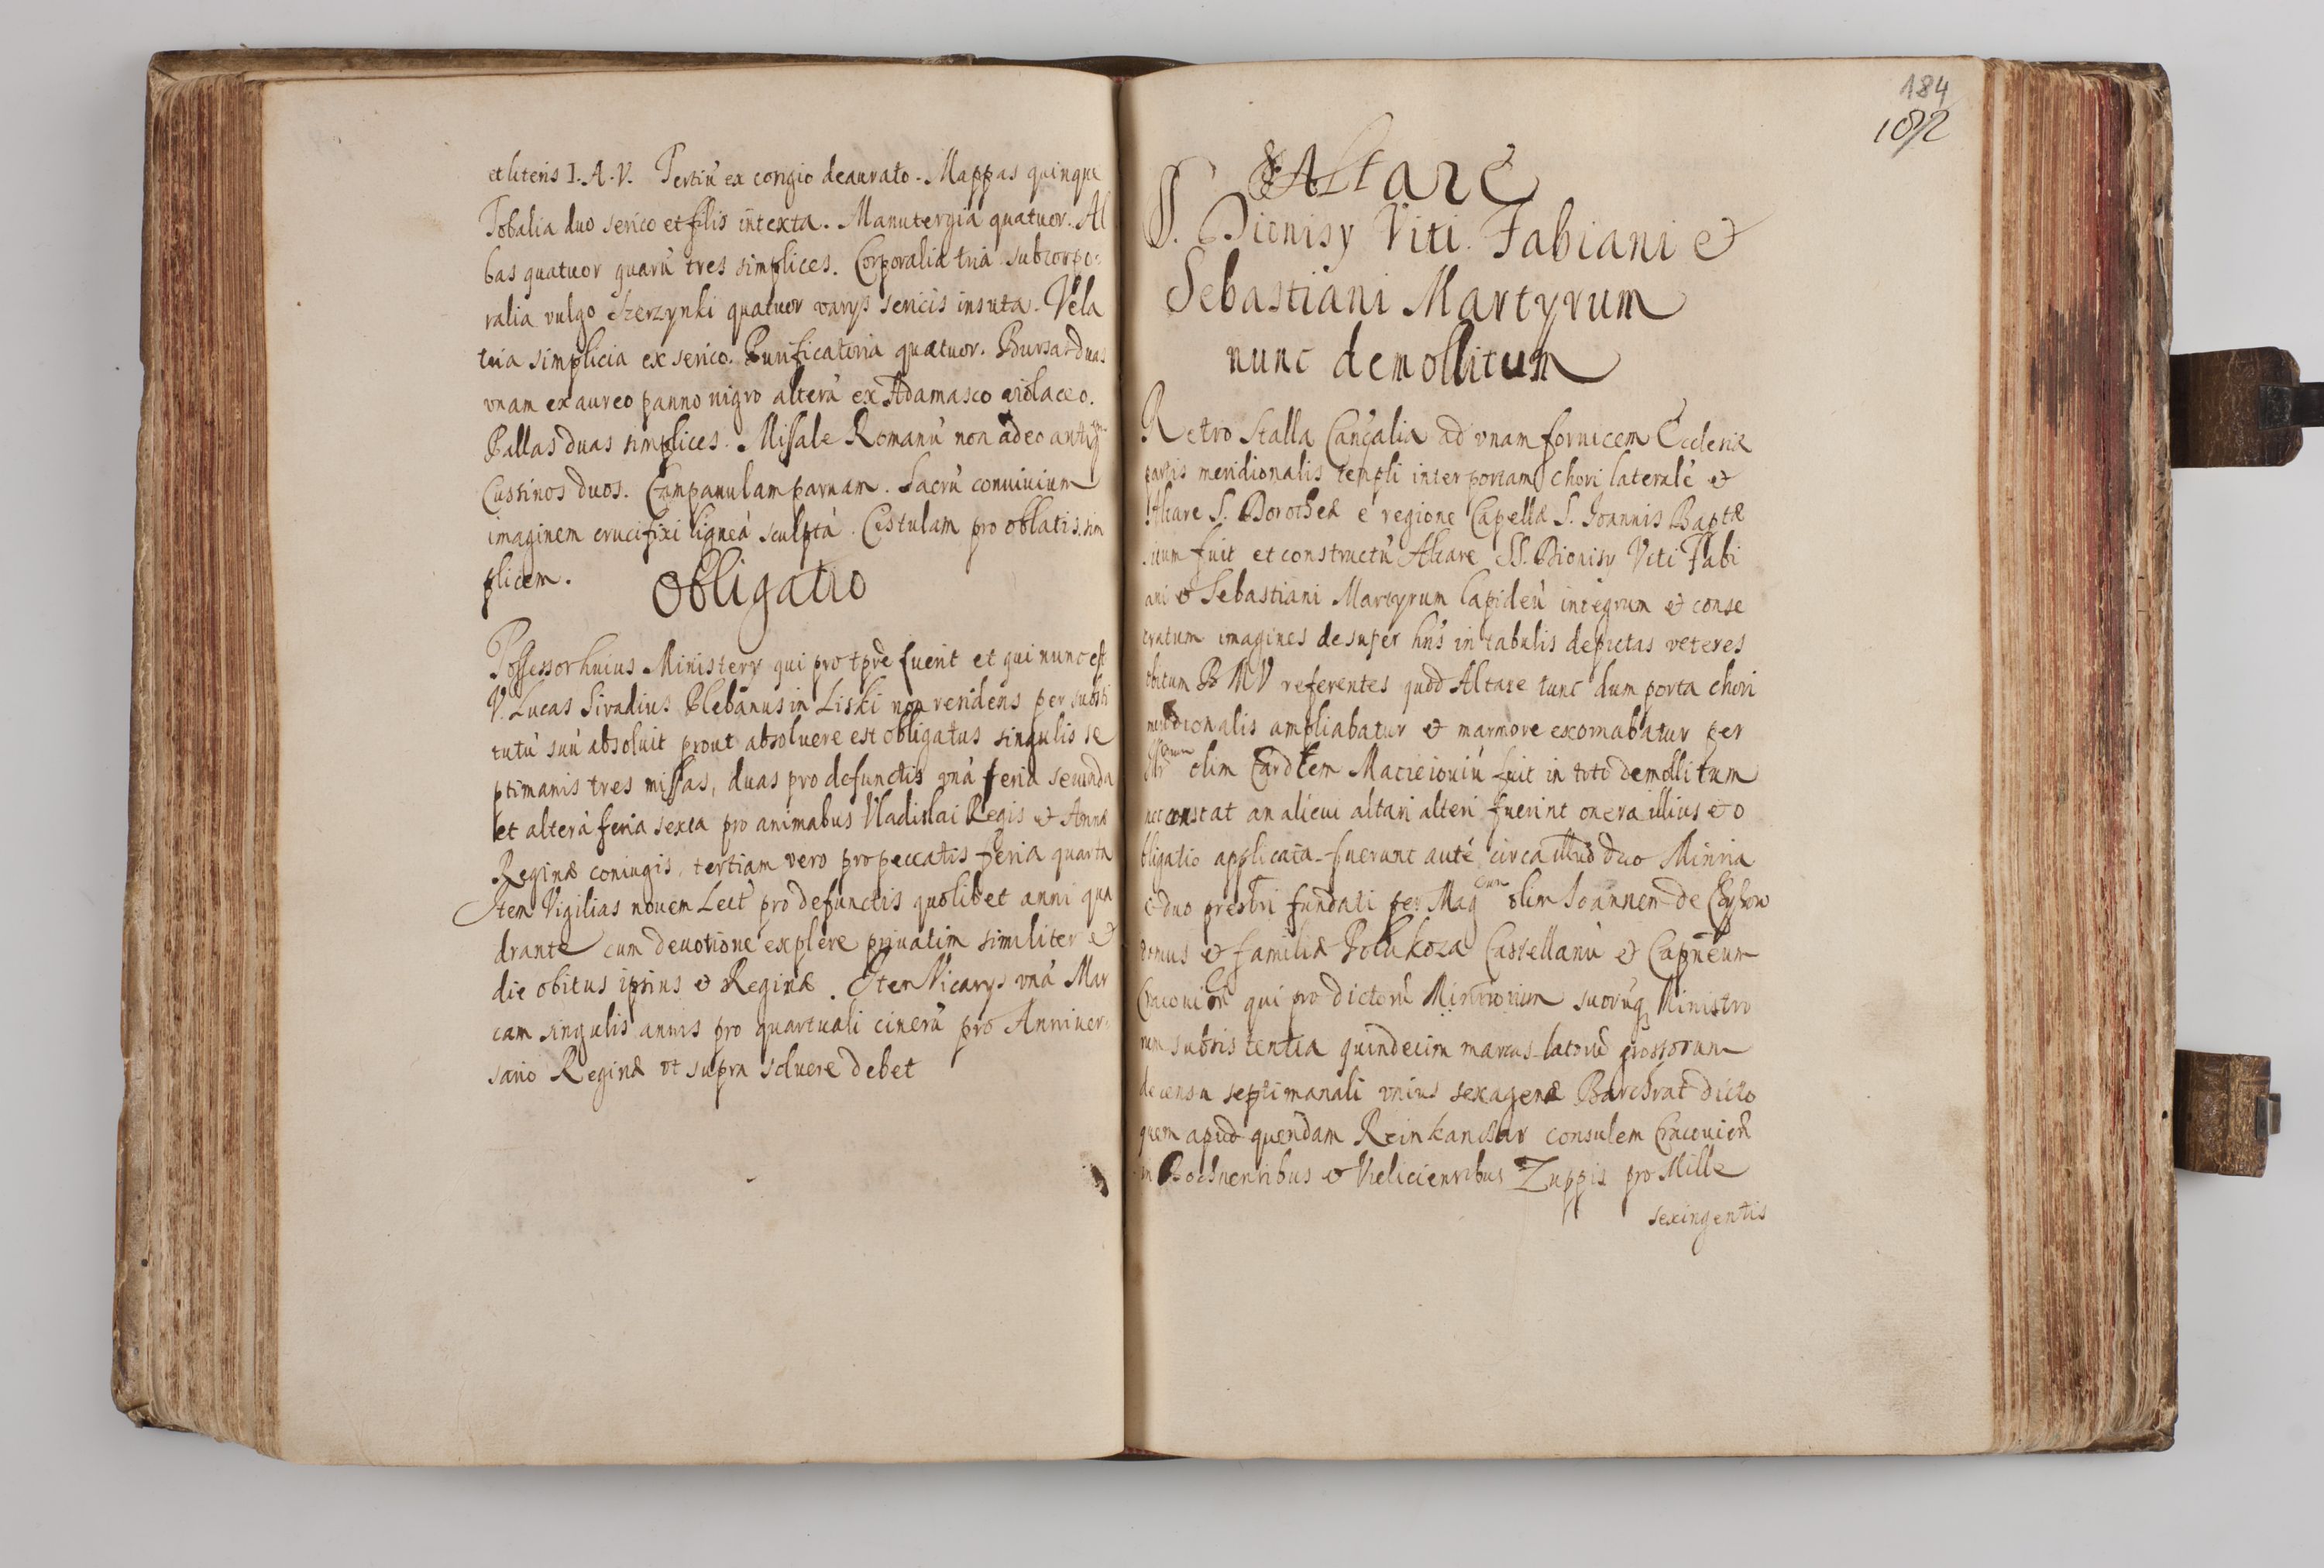 et literis I. A. V. Tertiũ ex congio deaurato. Mappas quinque
Tobalia duo serico et filis intexta. Manutergia quatuor. Al
bas quatuor quarũ tres simplices. Corporalia tria subcorpo:
ralia vulgo Szerzynki quatuor varys sericis insuta. Vela
tria simplicia ex serico. Purificatoria quatuor. Bursas duas
vnam ex aureo panno nigro alterũ ex Adamasco violaceo.
Pallas duas simplices. Missale Romanũ non adeo
Cussinos duos. Campanulam paruam. Sacrũ conuiuium
imaginem crucifixi ligneã sculptã. Cestulam pro oblatis sim
plicem.
Obligatio
Possessor huius Ministery qui pro tpre fuerit et qui nunc est
V. Lucas Siradius Plebanus in Liski non residens per substi
tutũ suũ absoluit prout absoluere est obligatus singulis se
ptimanis tres missas, duas pro defunctis vnã feria secunda
et alterã feria sexta pro animabus Vladislai Regis et Annæ
Reginæ coniugis, tertiam vero pro peccatis feria quarta
Item Vigilias nouem Lect pro defunctis quolibet anni qua
drante cum deuotione explere priuatim similiter et
die obitus ipsius et Reginæ. Item Vicarys vnã Mar
cam singulis annis pro quartuali cinerũ pro Anniuer:
sario Reginæ vt supra soluere debet
184
Altare
S. Dionisy Viti Fabiani et
Sebastiani Martyrum
nunc demollitum
Retro Stalla Cancalia ad vnam fornicem Ecclesiæ
partis meridionalis templi inter portam chori lateralẽ et
Altare S. Dorotheæ e regione Capellæ S. Joannis Baptæ
situm fuit et constructũ Altare SS. Dionisy Viti Fabi
ani et Sebastiani Martyrum lapideũ integrum et conse
cratum imagines desuper hñs in tabulis depictas veteres
obitum B M V referentes quod Altare tunc dum porta chori
meridionalis ampliabatur et marmore exornabatur per
olim Cardlem Macieiouiũ fuit in toto demollitum
nec constat an alicui altari alteri fuerint onera illius et o
bligatio applicata fuerunt autẽ circa illud duo Minria
et duo prestri fundati per Magcum olim Ioannem de Czyzow
domus et familiæ Polukoza Castellanũ et Capneum
Cracouien qui pro dictorũ Minriorum suorũq Ministro
rum subsistentia quindecim marcas latorũ grossorum
de censu septimanali vnius sexagenæ Barchrat dicto
quem apud quendam Reinkanczar consulem Cracouien
in Bochnensibus et Veliciensibus Zuppis pro Mille
sexingentis